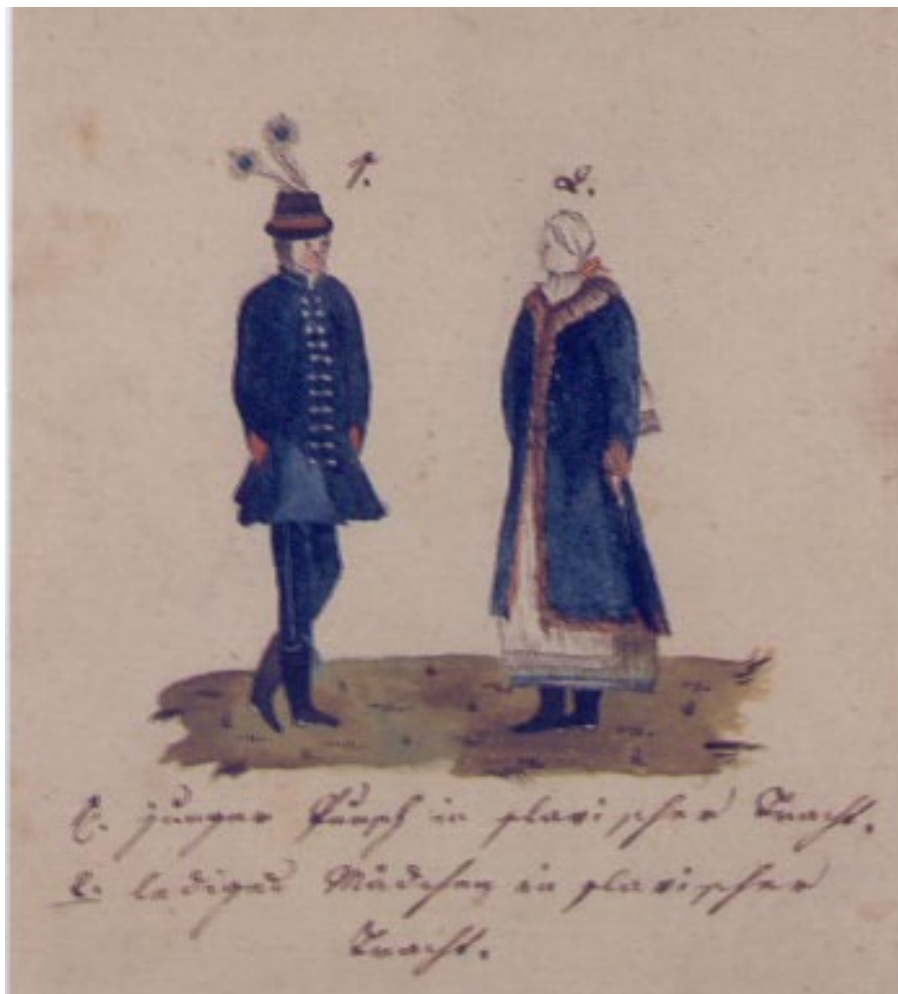 1.
2.
1. junger Pursch in slavischer Tracht.
2. lediges Mädchen in slavischer
Tracht.